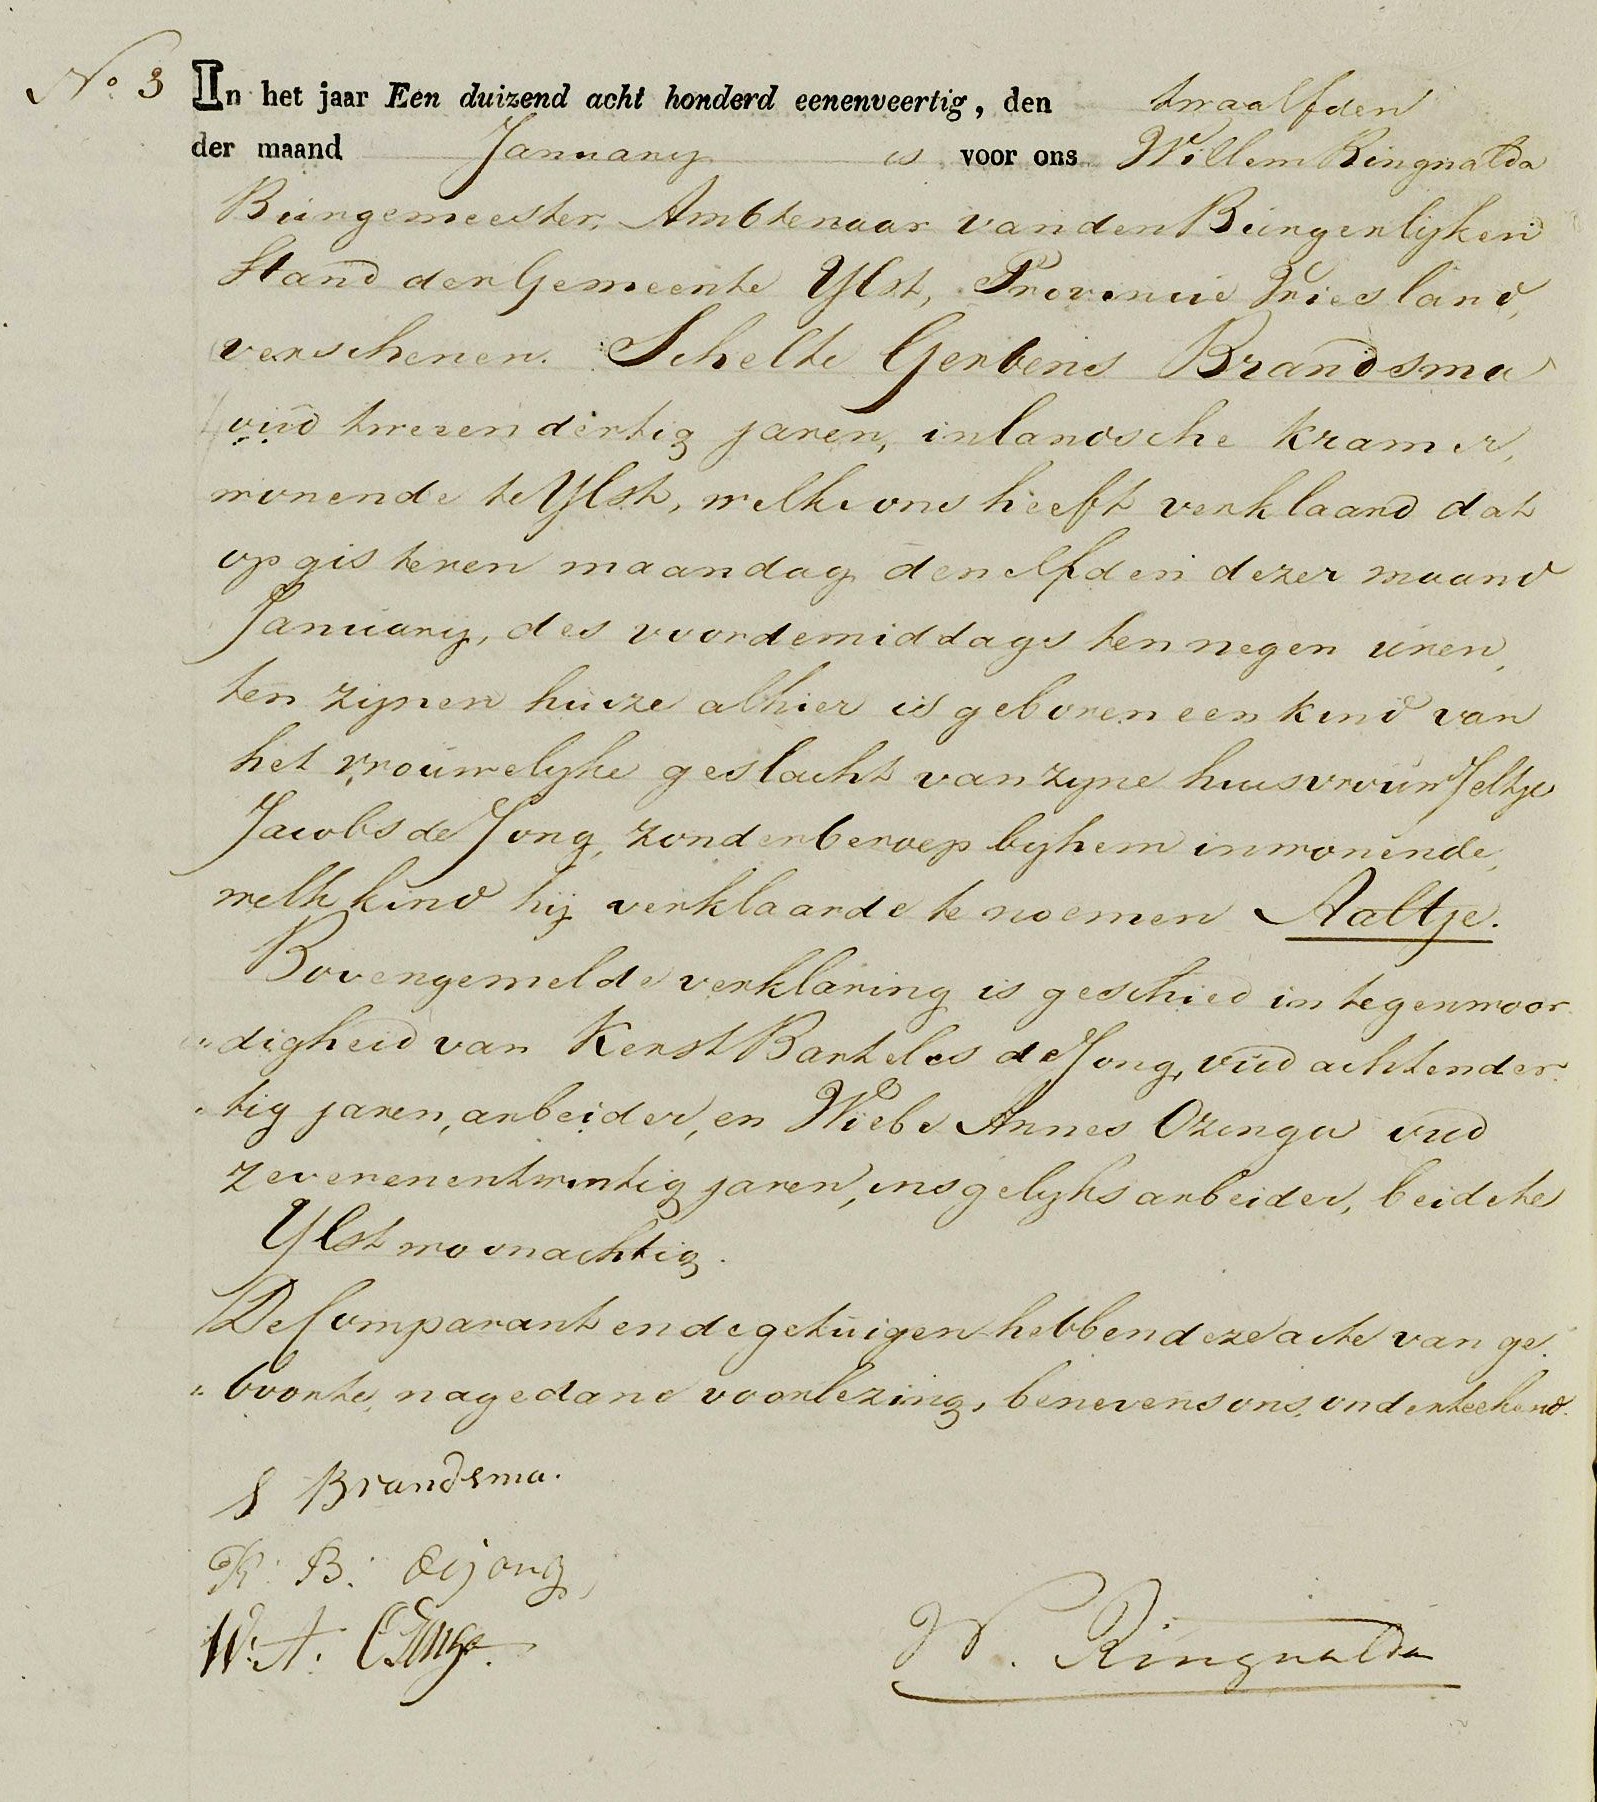 No. 3 In het jaar Een duizend acht honderd eenenveertig, den twaalfden
der maand January is voor ons Willem Ringnalda
Burgemeester, Ambtenaar van den Burgerlyken
Stand der Gemeente Ylst, Provincie Friesland,
verschenen. Schelte Gerbens Brandsma
oud tweeendertig jaren, inlandsche kramer,
wonende te Ylst, welke ons heeft verklaard dat
op gisteren maandag den elfden dezer maand
January, des voordemiddags ten negen uren,
ten zynen huize alhier is geboren een kind van
het vrouwelyke geslacht van zyne huisvrouw Jeltje
Jacobs de Jong, zonder beroep by hem inwonende,
welk kind hij verklaarde te noemen Aaltje.
Bovengemelde verklaring is geschied in tegenwoor
„digheid van Kerst Barteles de Jong, oud achtender
„tig jaren, arbeider, en Wiebe Annes Ozenga oud
zevenentwintig jaren, insgelyks arbeider, beide te
Ylst woonachtig.
De Comparant en de getuigen hebben deze acte van ge
„boorte, na gedane voorlezing, benevens ons, onderteekend.
S Brandsma.
K. B. de jong,
W. A. Ozinga.
W. Ringnalda